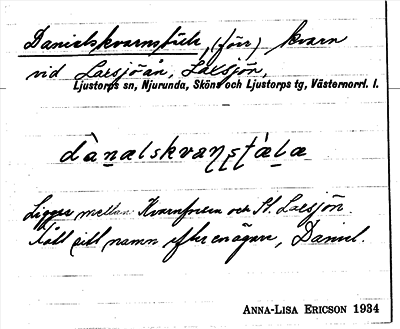 Danielskvarnstäde, (förr) kvarn
vid Laxsjöån, Laxsjön,
Ljustorps sn, Njurunda, Sköns och Ljustorps tg, Västernorrl. l.
Ligger mellan och St. Laxsjön.
Fått sitt namn efter en ägare, Daniel.
ANNA-LISA ERICSON 1934